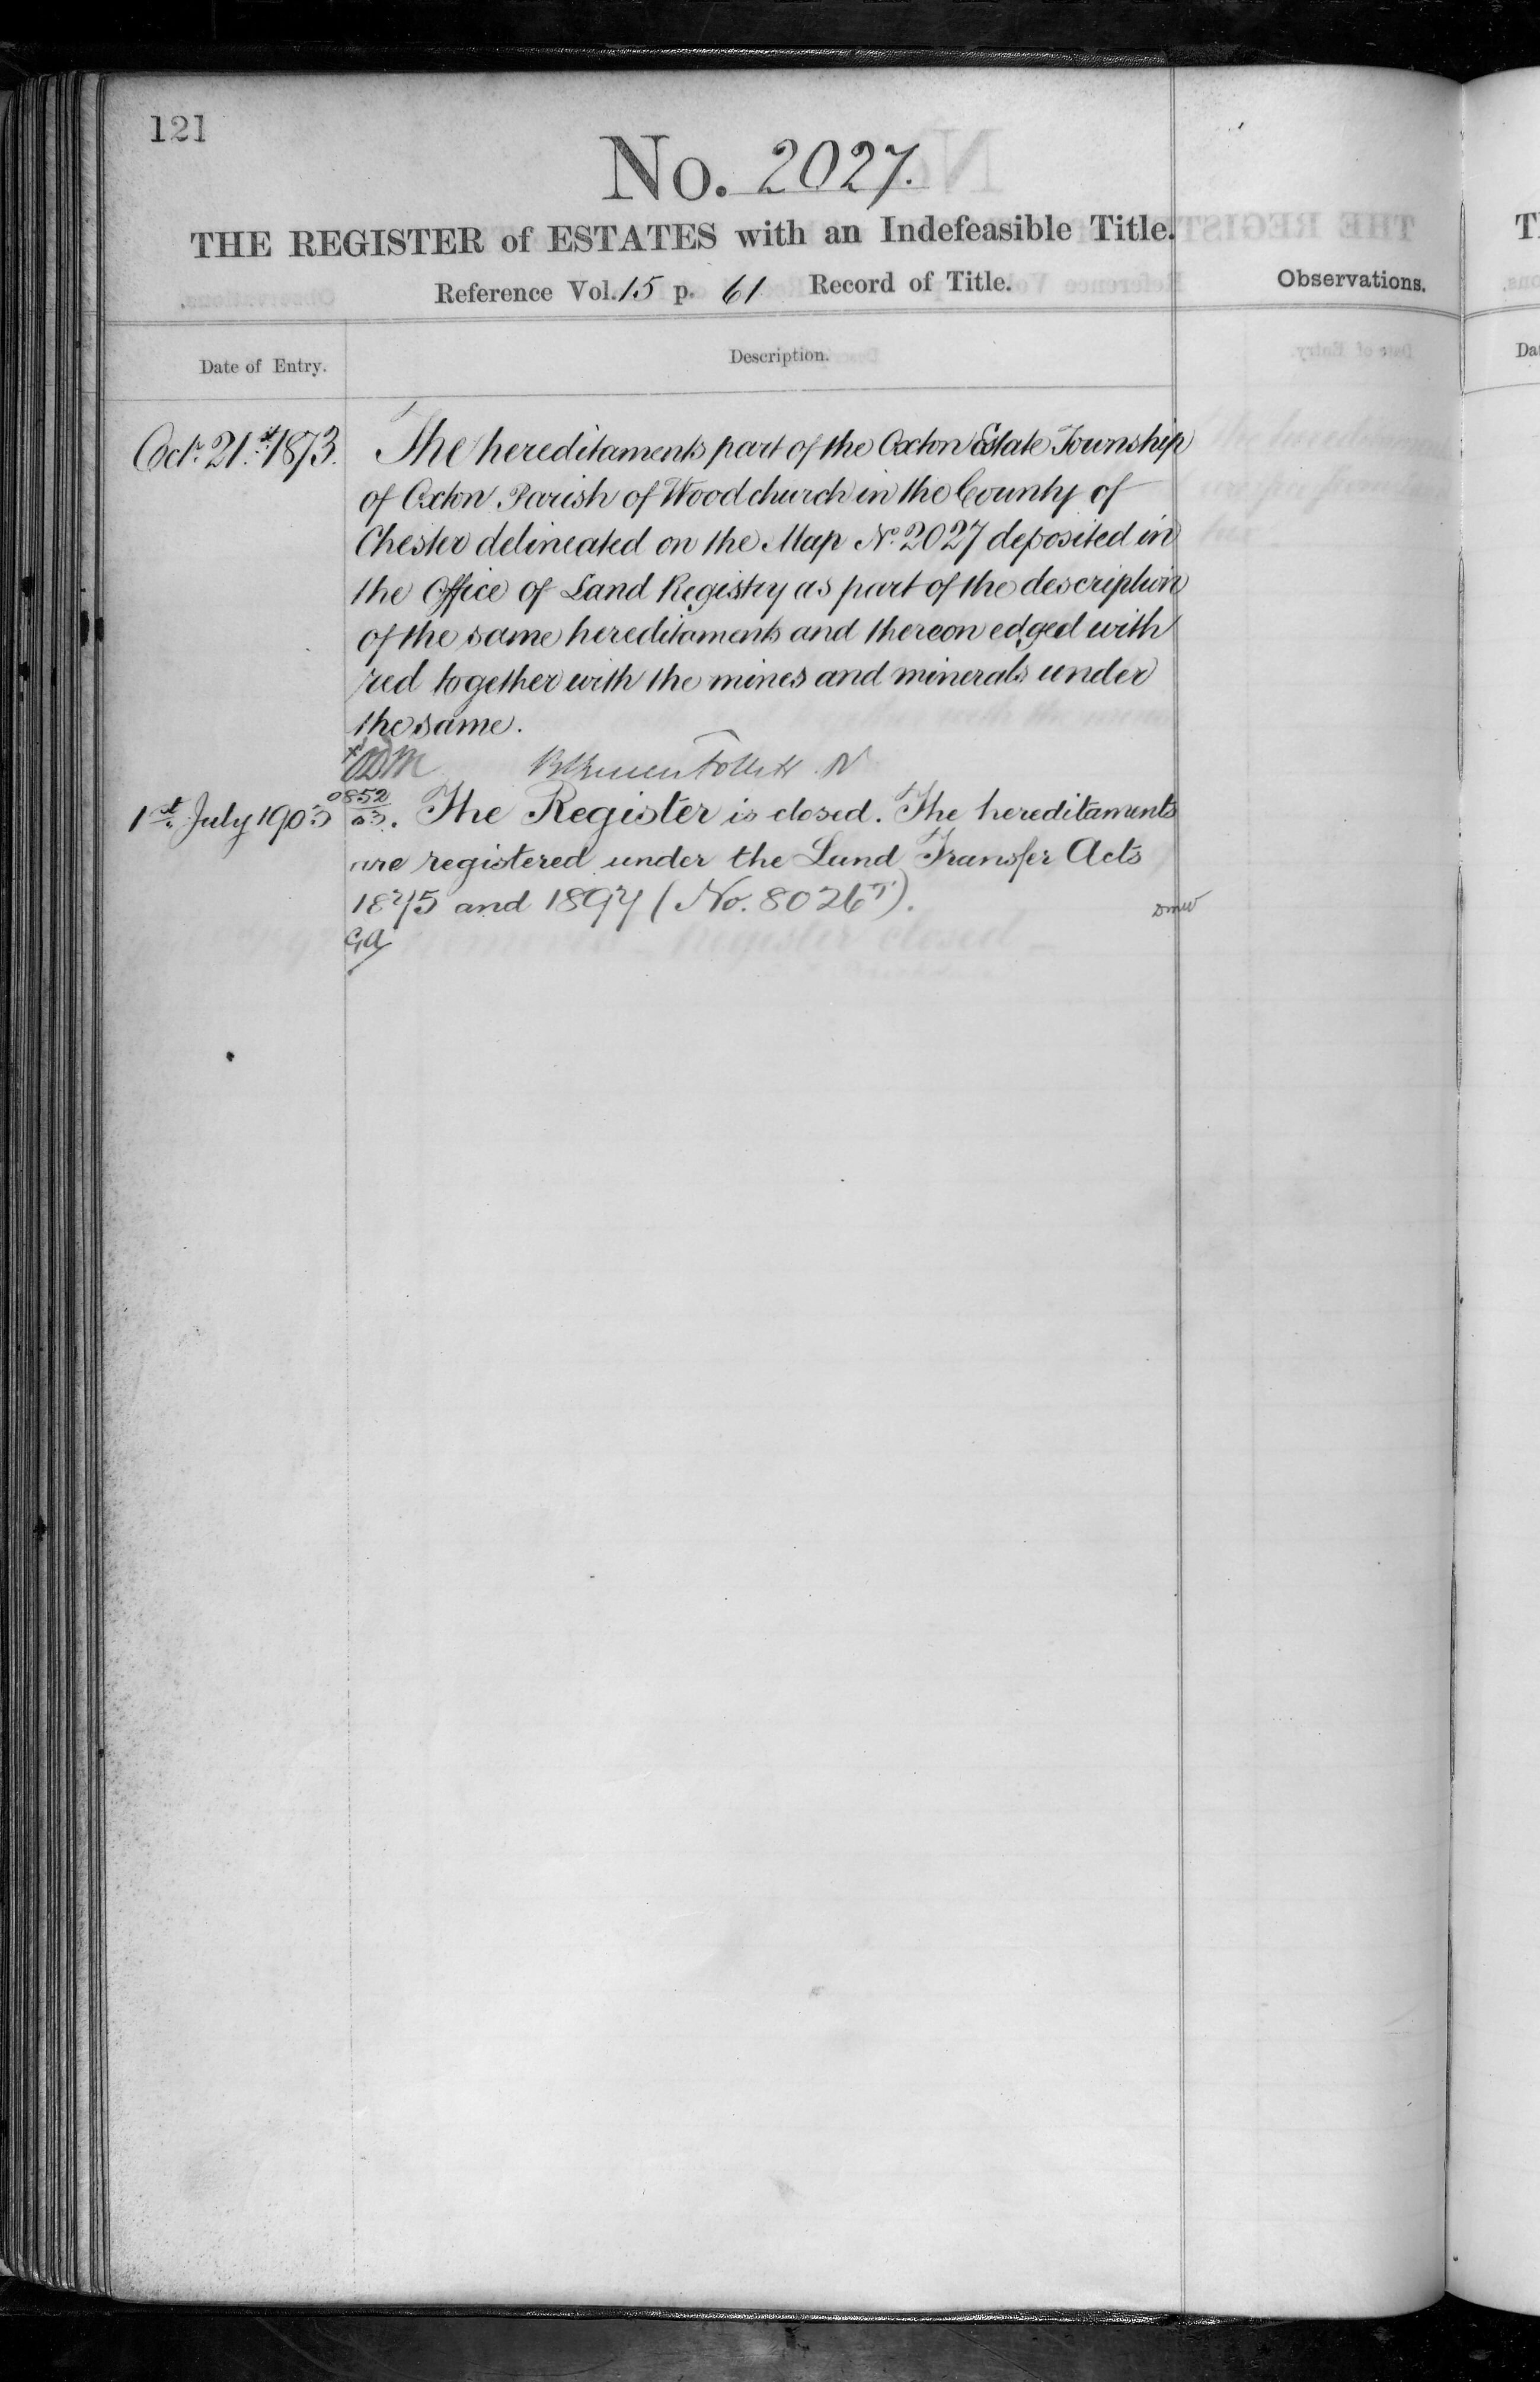 121
No. 2027.
THE REGISTER of ESTATES with an Indefeasible Title.
Reference Vol. 15 p. 61 Record of Title.
Observations.
Date of Entry.
Description.
Octr. 21st. 1873.
The hereditaments part of the Oxton Estate Township
of Oxton Parish of Woodchurch in the County of
Chester delineated on the Map No. 2027 deposited in
the Office of Land Registry as part of the description
of the same hereditaments and thereon edged with
red together with the mines and minerals under
the same.
Follett
1st. July 1903
0852/03. The Register is closed. The hereditaments
are registered under the Land Transfer Acts
1875 and 1897 (No. 8026T).
GA
DMW